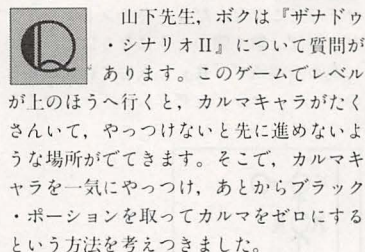 Q
山下先生，ボクは『ザナドゥ
・シナリオII』について質問が
あります。このゲームでレベル
が上のほうへ行くと，カルマキャラがたく
さんいて，やっつけないと先に進めないよ
うな場所がでてきます。そこで，カルマキ
ャラを一気にやっつけ，あとからブラック
・ポーションを取ってカルマをゼロにする
という方法を考えつきました。